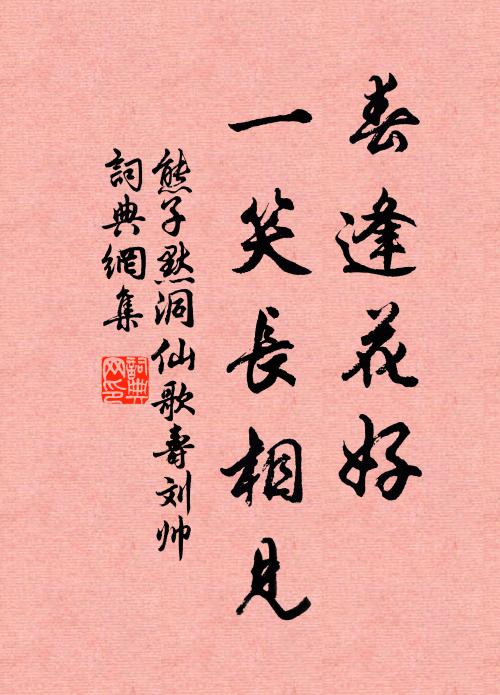 春逢花好
一笑長相見
熊子默洞仙歌壽刘帅
詞典網集
詞典
网印